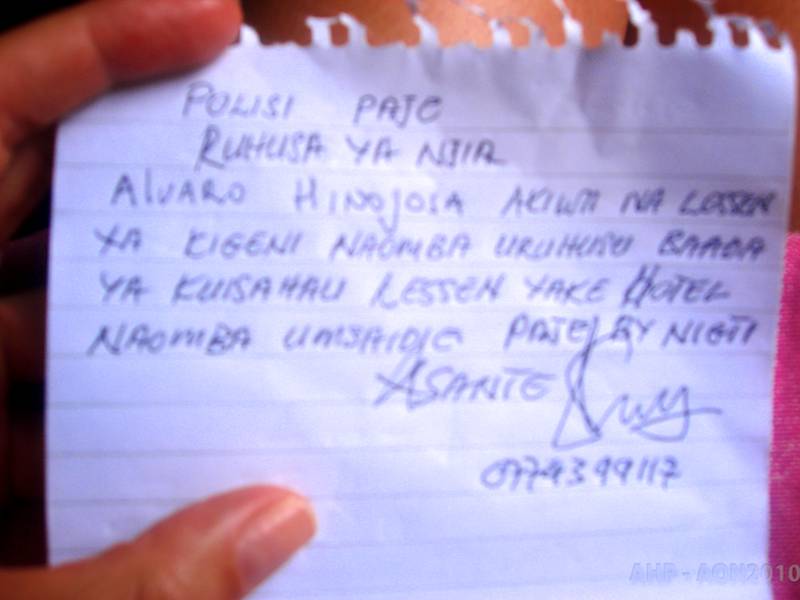 POLISI PAJE
RUHUSA YA NJIA
ALVARO HINOJOSA AKIWA NA LESSEN
YA KIGENI NAOMBA URUHUSU BAADA
YA KUISAHAU LESSEN YAKE HOTEL
NAOMBA UMSAIDIE PAJE BY NIGTI
ASANTE
0774399117
AHP - AON2010